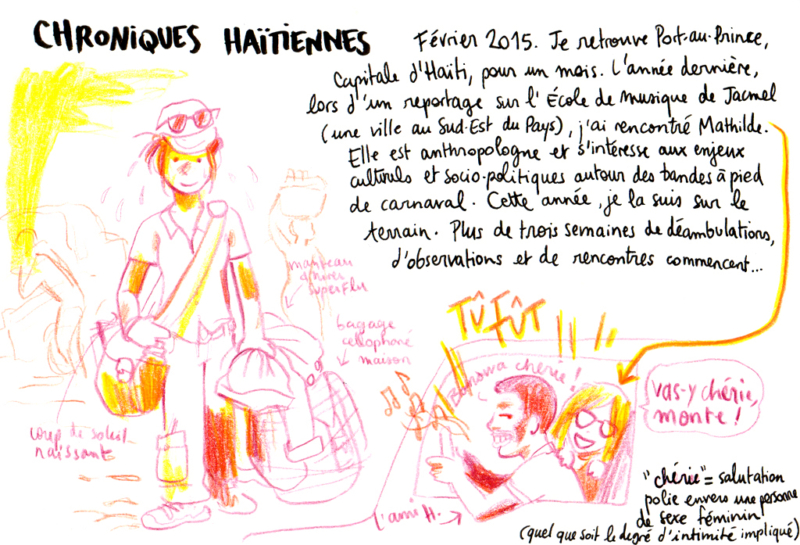 CHRONIQUES HAÏTIENNES
Février 2015. Je retrouve Port-au-Prince,
capitale d'Haïti, pour un mois. L'année dernière,
lors d'un reportage sur l'École de musique de Jacmel
(une ville au Sud-Est du Pays), j'ai rencontré Mathilde.
Elle est anthropologue et s'intéresse aux enjeux
culturels et socio-politiques autour des bandes à pied
de carnaval. Cette année, je la suis sur le
terrain. Plus de trois semaines de déambulations,
d'observations et de rencontres commencent...
manteau
d'hiver
superflu
bagage
cellophané
maison
coup de soleil
naissant
TÛFÛT
Bonswa chérie !
vas-y chérie,
monte !
l'ami H.
"chérie" = salutation
polie envers une personne
de sexe féminin
(quel que soit le degré d'intimité impliqué)